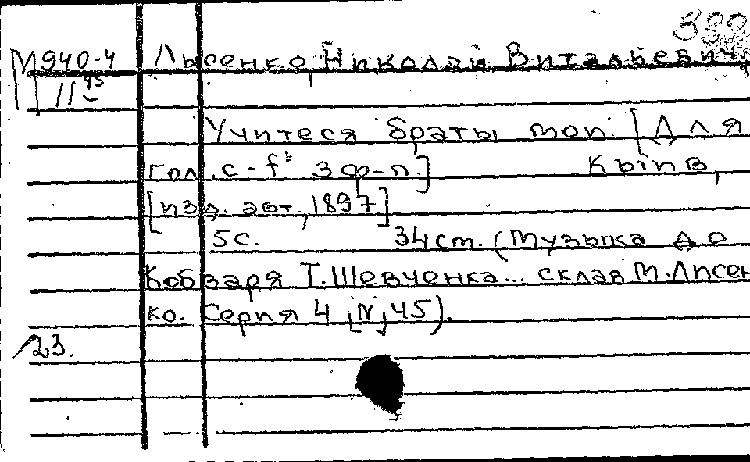 М940-4 Лысенко, Николай Витальевич,
II 45
Учитеся браты мои. [Для
гол. с-f² з ф-п.] Кыїв,
[изд. авт., 1897]
5с. 34см. (Музыка до
Кобзаря Т. Шевченка... склав М. Лисен
ко. Серия 4, [N, 45).
23.